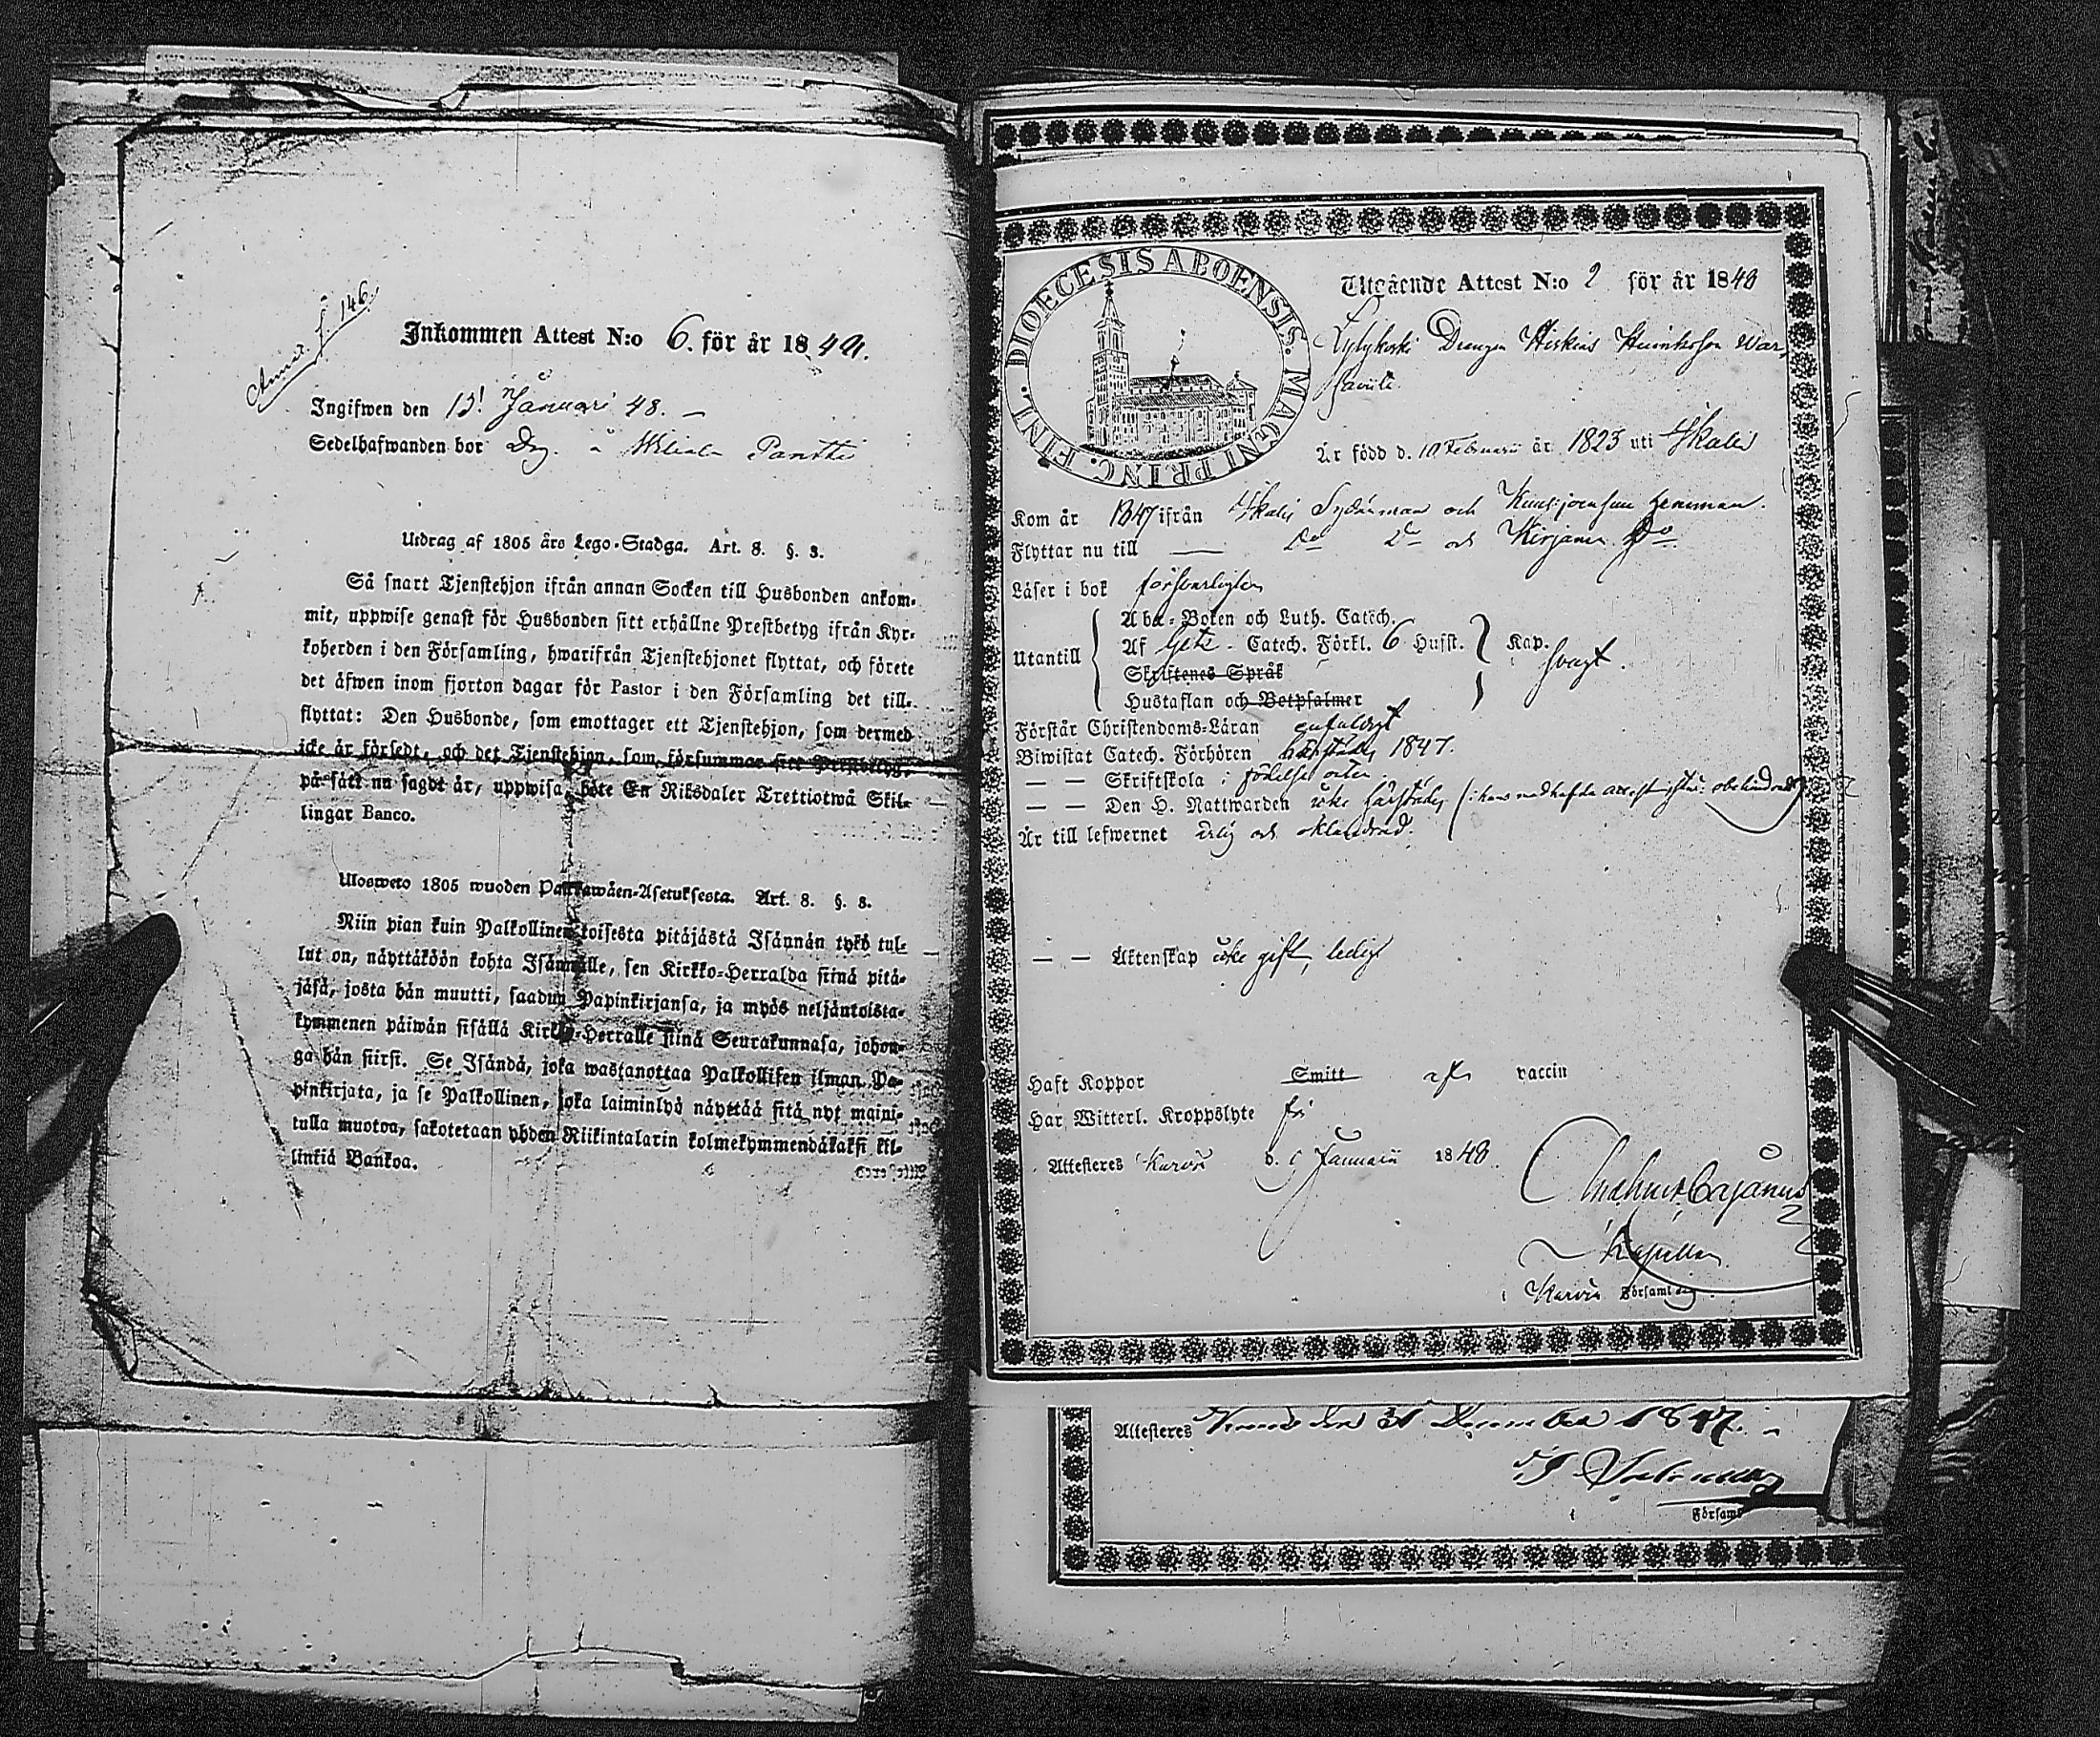 Annot. f. 146.
Inkommen Attest N:o 6. för år 18
Ingifwen den 13! Januari 48. —
Sedelhafwanden bor Drg. å
Utdrag af 1805 års Lego-Stadga. Art. 8. §. 8.
Så snart Tjenstehjon ifrån annan Socken till Husbonden ankom-
mit, uppwise genast för Husbonden sitt erhållne Prestbetyg ifrån Kyr-
koherden i den Församling, hwarifrån Tjenstehjonet flyttat, och förete
det äfwen inom fjorton dagar för Pastor i den Församling det till-
flyttat: Den Husbonde, som emottager ett Tjenstehjon, som dermed
icke är försedt, och det Tjenstehjon, som försummar sitt Prestbetyg,
på sätt nu sagdt är, uppwisa, böte En Riksdaler Trettiotwå Skil-
lingar Banco.
Ulosweto 1805 wuoden Palkkawäen-Asetuksesta. Art. 8. §. 8.
Niin pian kuin Palkollinen toisesta pitäjästä Isännän tykö tul-
lut on, näyttäköön kohta Isännälle, sen Kirkko-Herralda siinä pitä-
jäsä, josta hän muutti, saadun Papinkirjansa, ja myös neljäntoista-
kymmenen päiwän sisällä Kirkko-Herralle siinä Seurakunnasa, johon-
ga hän siirsi. Se Isändä, joka wastanottaa Palkollisen ilman Pa-
pinkirjata, ja se Palkollinen, joka laiminlyö näyttää sitä nyt maini-
tulla muotoa, sakotetaan yhden Riikintalarin kolmekymmendäkaksi kil-
linkiä Bankoa.
DIOECESIS ABOENSIS. MAGNI PRINC. FINL.
Utgående Attest N:o 2 för år 1848
Drengen
Är född d. 10 Februarii år 1823 uti Ikalis
Kom år 1847 ifrån Ikalis och hemman.
Flyttar nu till — Do Do och
Läser i bok försvarligen
Utantill
Aba-Boken och Luth. Catech.
Af Catech. Förkl. 6 Husst. Kap.
Skriftenes Språk svagt.
Hustaflan och Botpsalmer
Förstår Christendoms-Läran enfaldigt
Biwistat Catech. Förhören härstädes 1847.
— — Skriftskola i födelse orten.
— — Den H. Nattwarden icke härstädes
Är till lefwernet ärlig och oklandrad.
— — Äktenskap icke gift, ledig
Haft Koppor Smitt af vaccin
Har Witterl. Kroppslyte fri
Attesteres Karvia d. Januarii 1848
Cajanus
Kapellan
i Karvia Församling.
Attesteres den 31 December 1847.
i Församl